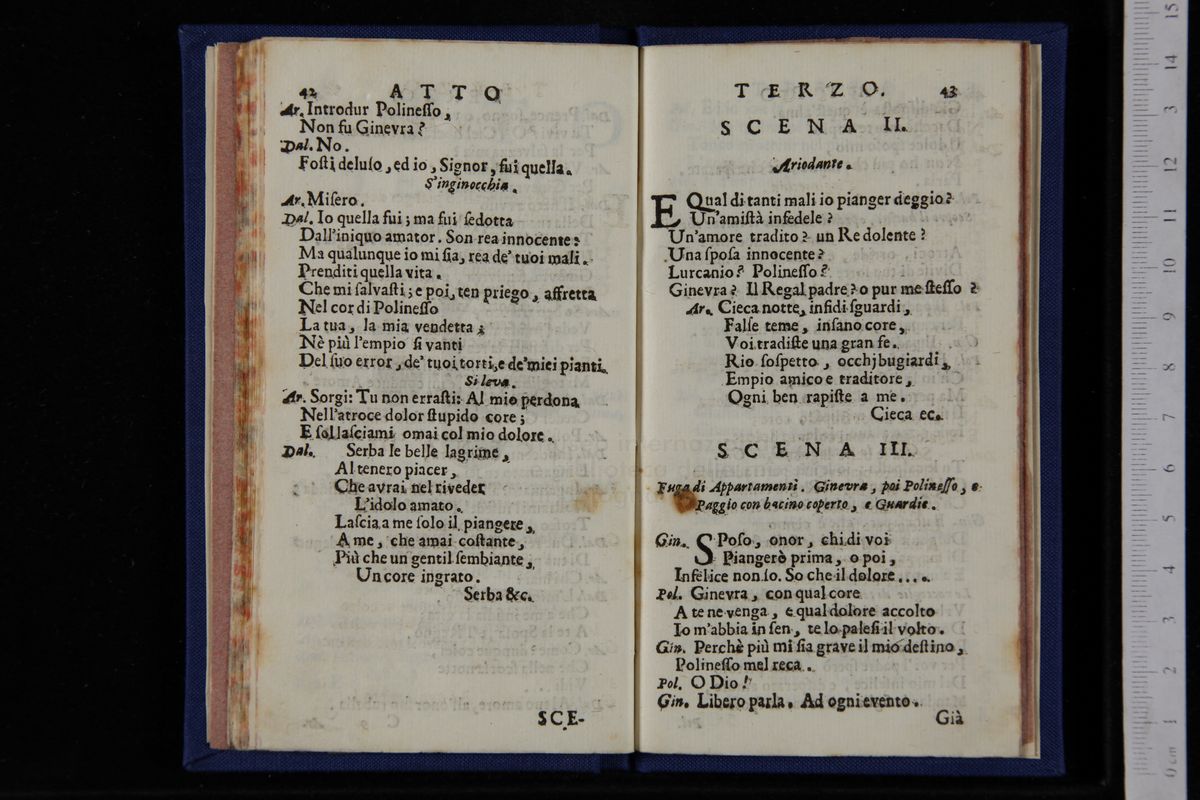 42 ATTO
Ar. Introdur Polineſſo,
Non fu Ginevra?
Dal. No.
Foſti deluſo, ed io, Signor, fui quella.
S'inginocchia.
Ar. Miſero.
Dal. Io quella fui; ma fui ſedotta
Dall'iniquo amator. Son rea innocente:
Ma qualunque io mi ſia, rea de' tuoi mali.
Prenditi quella vita.
Che mi ſalvaſti; e poi, ten priego, affretta
Nel cor di Polineſſo
La tua, la mia vendetta;
Nè più l'empio ſi vanti
Del ſuo error, de' tuoi torti, e de' miei pianti.
Si leva.
Ar. Sorgi: Tu non erraſti: Al mio perdona
Nell'atroce dolor ſtupido core;
E ſol laſciami omai col mio dolore.
Dal. Serba le belle lagrime,
Al tenero piacer,
Che avrai nel riveder
L'idolo amato.
Laſcia a me ſolo il piangere,
A me, che amai coſtante,
Più che un gentil ſembiante,
Un core ingrato.
Serba &c.
SCE-
TERZO. 43
SCENA II.
Ariodante.
E Qual di tanti mali io pianger deggio?
Un'amiſtà infedele?
Un'amore tradito? un Re dolente?
Una ſpoſa innocente?
Lurcanio? Polineſſo?
Ginevra? Il Regal padre? o pur me ſteſſo?
Ar. Cieca notte, infidi ſguardi,
Falſe teme, inſano core,
Voi tradiſte una gran fe.
Rio ſoſpetto, occhj bugiardi,
Empio amico e traditore,
Ogni ben rapiſte a me.
Cieca ec.
SCENA III.
Fuga di Appartamenti. Ginevra, poi Polineſſo, e
Paggio con bacino coperto, e Guardie.
Gin. SPoſo, onor, chi di voi
Piangerò prima, o poi,
Infelice non ſo. So che il dolore....
Pol. Ginevra, con qual core
A te ne venga, e qual dolore accolto
Io m'abbia in ſen, te lo paleſi il volto.
Gin. Perchè più mi ſia grave il mio deſtino,
Polineſſo mel reca.
Pol. O Dio!
Gin. Libero parla. Ad ogni evento.
Già
15
14
13
12
11
10
9
8
7
6
5
4
3
2
1
0 cm